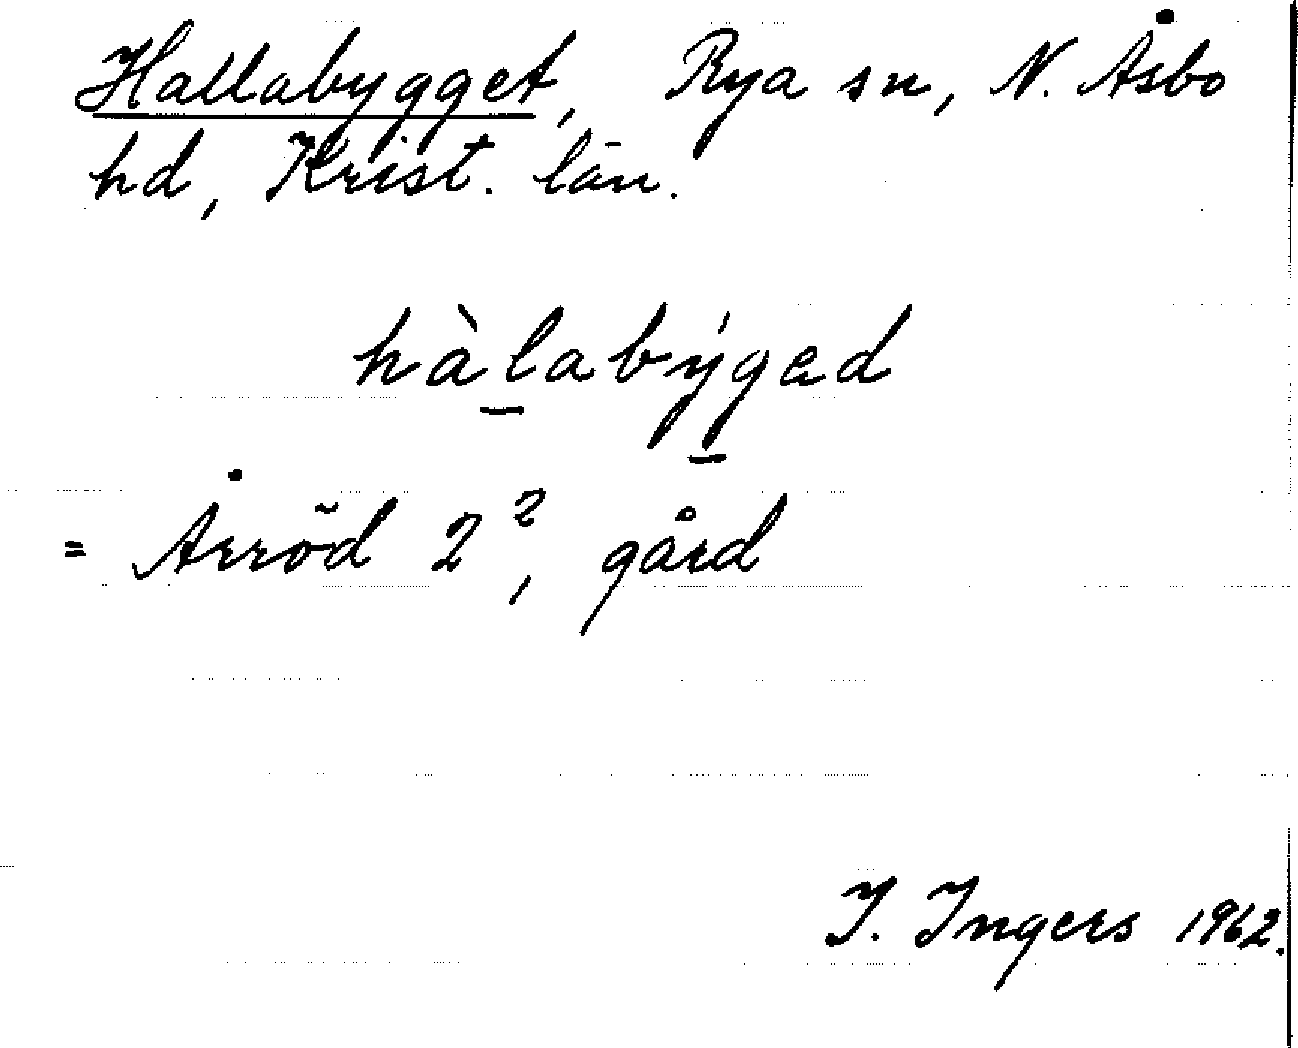 Hallabygget, Rya sn, N. Åsbo
hd, Krist. län.
hàlabýgad
= Årröd 2², gård
I. Ingers 1962.